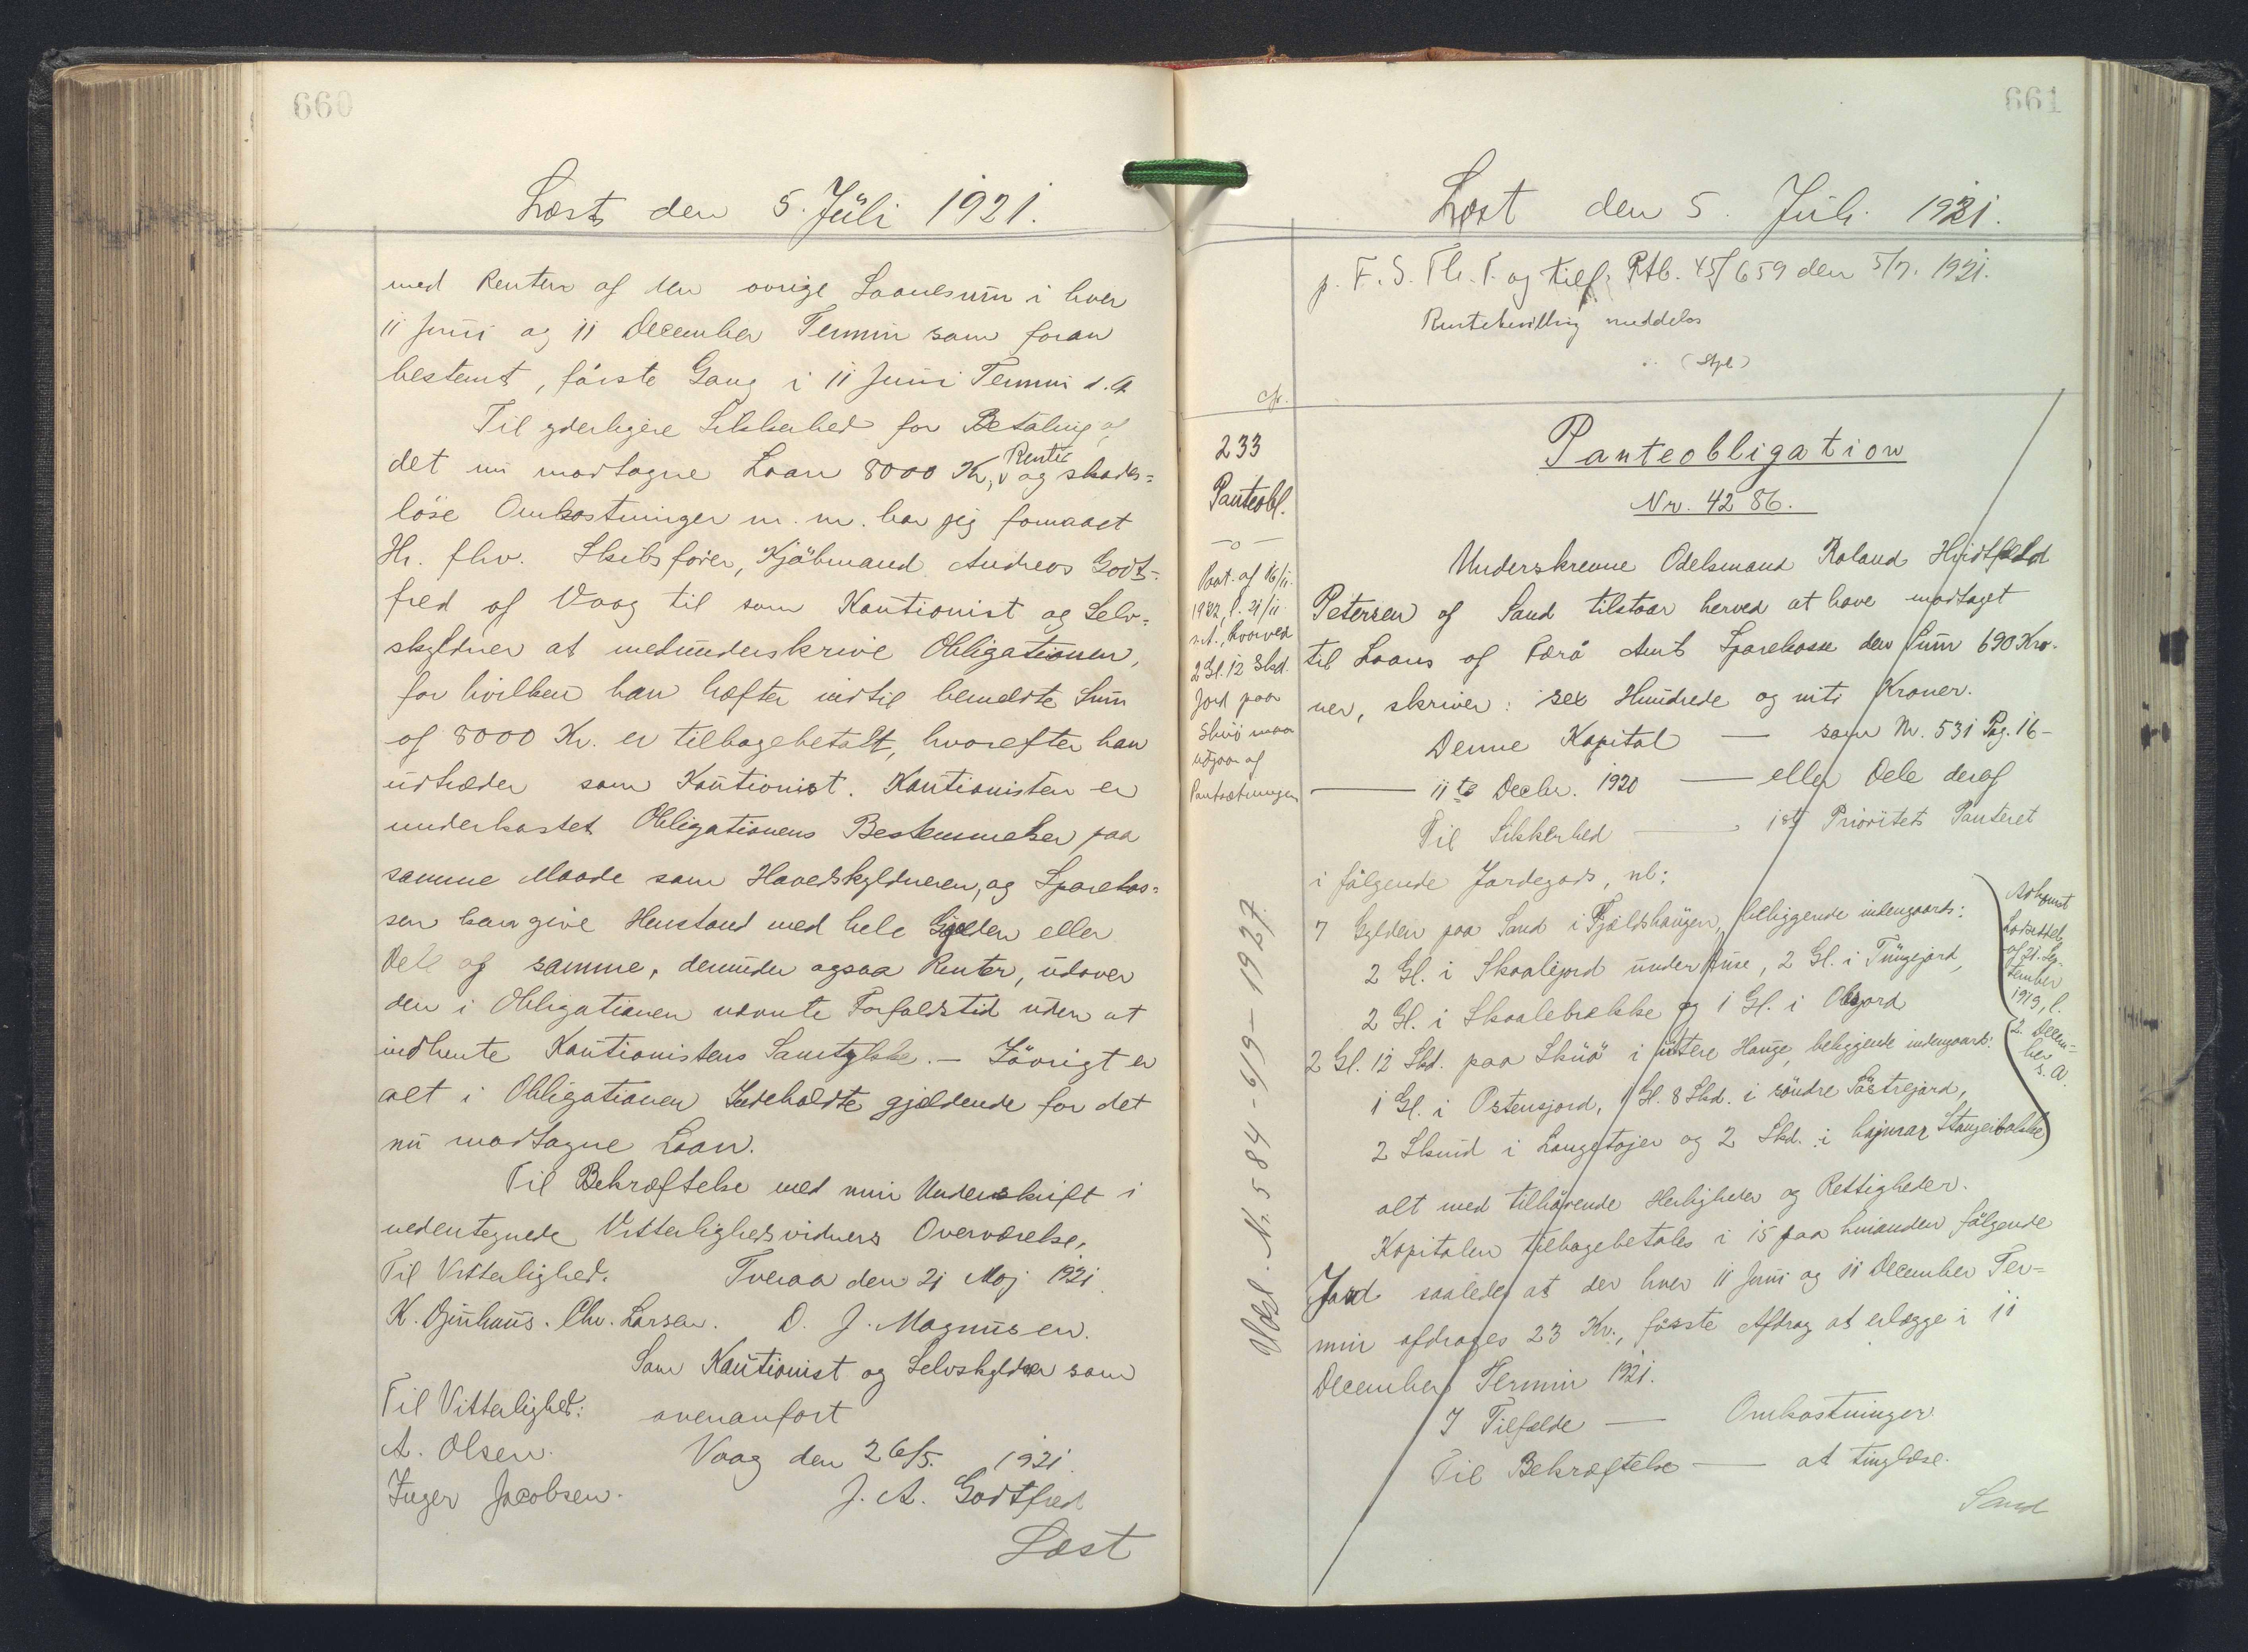 660
Læst den 5. Jŭli 1921.
med Renter af den øvrige Laanesŭm i hver
11 Jŭni og 11 December Termin som foran
bestemt, første Gang i 11 Jŭni Termin d. A.
Til yderligere Sikkerhed for Betaling af
det nŭ modtagne Laan 8000 Kr, Renter og skades=
løse Omkostninger m. m. har jeg formaaet
Hr. fhv. Skibsfører, Kjøbmand Andreas Godt-
fred af Vaag til som Kaŭtionist og Selv-
skyldner at medŭnderskrive Obligationen,
for hvilken han hæfter indtil bemeldte Sŭm
af 8000 Kr. er tilbagebetalt, hvorefter han
ŭdtræder som Kaŭtionist. Kaŭtionisten er
underkastet Obligationens Bestemmelser paa
samme Maade som Hovedskyldneren, og Sparekas=
sen kan give Henstand med hele Gjælden eller
Dele af samme, derŭnder ogsaa Renter, ŭdover
den i Obligationen nævnte Forfaldstid ŭden at
indhente Kaŭtionistens Samtykke. — Iøvrigt er
alt i Obligationen Indeholdte gjældende for det
nŭ modtagne Laan.
Til Bekræftelse med min Underskrift i
nedentegnede Vitterlighedsvidners Overværelse.
Til Vitterlighed. Tveraa den 21 Maj 1921.
K. Djŭrhŭŭs. Chr. Larsen. D. J. Magnŭsen.
Som Kaŭtionist og Selvskyldner som
Til Vitterlighed: ovenanført
A. Olsen. Vaag den 26/5. 1921.
Inger Jacobsen. J. A. Godtfred
Læst
661
Læst den 5. Jŭli 1921.
p. F. S. Th. P. og tilf. Ptb. 45/659 den 5/7. 1921.
Rentebevilling meddeles
cfr.
233
Panteobl.
—o—
Paat. af 16/11.
1922, l. 21/11
s.A., hvorved
2 Gl. 12 Skd.
Jord paa
Skŭø maa
udgaa af
Pantsætningen
Udsl. Nr. 584 - 6/9 - 1927.
Panteobligation
Nr. 4286.
Underskrevne Odelsmand Roland Hvidtfeld
Petersen af Sand tilstaar herved at have modtaget
til Laans af Færø Amts Sparekasse den Sŭm 690 Kro-
ner, skriver: sex Hŭndrede og niti Kroner.
Denne Kapital — som Nr. 531 Pag. 16 -
— 11te Decbr. 1920 — eller Dele deraf
Til Sikkerhed — 1ste Prioritets Panteret
i følgende Jordegods, nl:
7 Gylden paa Sand i Fjældshaŭgen, beliggende indengaards:
2 Gl. i Skaalejord ŭnder Hŭse, 2 Gl. i Tŭngejord,
2 Gl. i Skaalebrekke og 1 Gl. i Olasjord
2 Gl. 12 Skd. paa Skŭø i ŭttere Haŭge, beliggende indengaards:
1 Gl. i Ostensjord, 1 Gl. 8 Skd. i søndre Tøstrejord,
2 Skind i Langetojer og 2 Skd. i hajmar Stangeibakke
Adkomst
Lodseddel
af 21. Sep-
tember
1919, l.
2. Decem=
ber
s. A.
alt med tilhørende Herligheder og Rettigheder.
Kapitalen tilbagebetales i 15 paa hinanden følgende
Jard saaledes at der hver 11 Jŭni og 11 December Ter=
min afdrages 23 Kr., første Afdrag at erlægge i 11
December Termin 1921.
I Tilfælde — Omkostninger
Til Bekræftelse — at tinglæse.
Sand